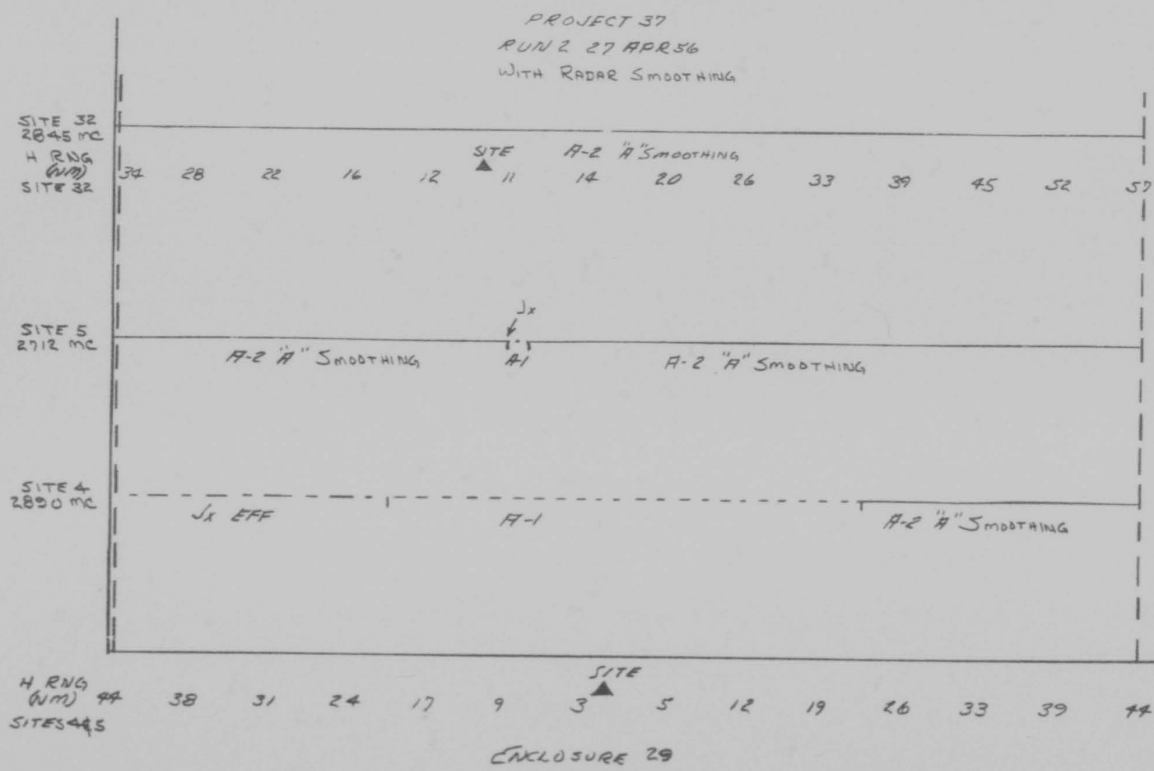 PROJECT 37
RUN 2 27 APR 56
WITH RADAR SMOOTHING
SITE 32
2845 MC
H RNG
(NM)
SITE 32
SITE A-2 "A" SMOOTHING
34 28 22 16 12 11 14 20 26 33 39 45 52 57
Jx
SITE 5
2712 MC
A-2 "A" SMOOTHING A-1 A-2 "A" SMOOTHING
SITE 4
2890 MC
Jx EFF A-1 A-2 "A" SMOOTHING
SITE
H RNG
(NM) 44 38 31 24 17 9 3 5 12 19 26 33 39 44
SITES 4&5
ENCLOSURE 29